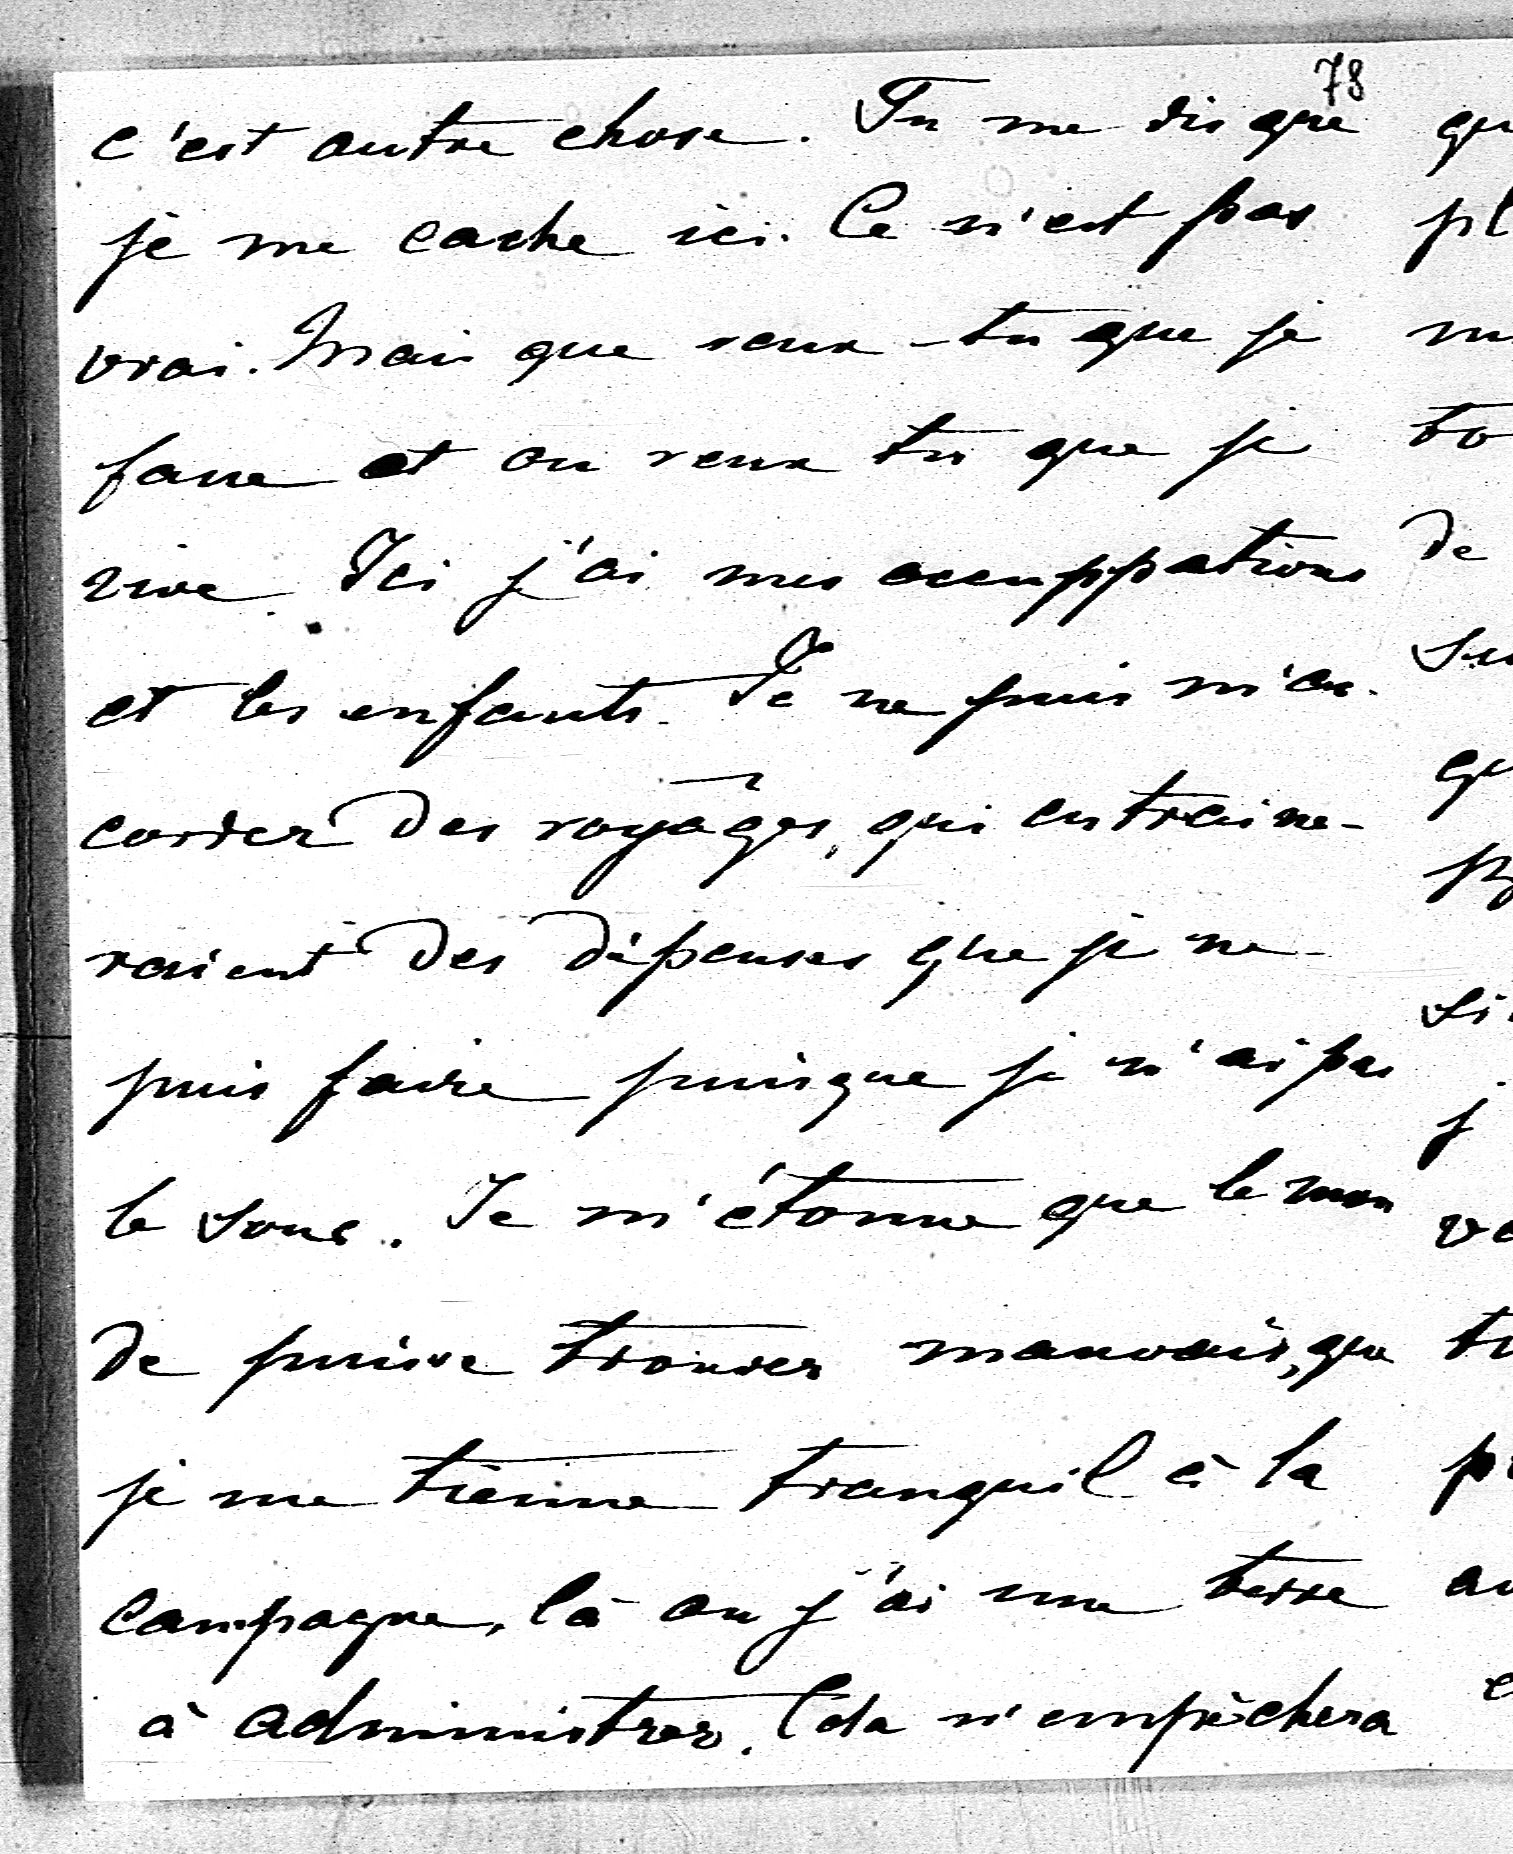 78
c'est autre chose. Tu me dis que
je me cache ici. Ce n'est pas
vrai. Mais que veux-tu que je
fasse et ou veux tu que je
vive. Ici j'ai mes occuppations
et les enfants. Je ne puis m'ac-
corder des voyages, qui entraine-
raient des dépenses que je ne
puis faire puisque je n'ai pas
le sous. Je m'étonne que le mon
de puisse trouver mauvais, que
je me tienne tranquil à la
campagne, là ou j'ai une terre
à administrer. Cela n'empêchera